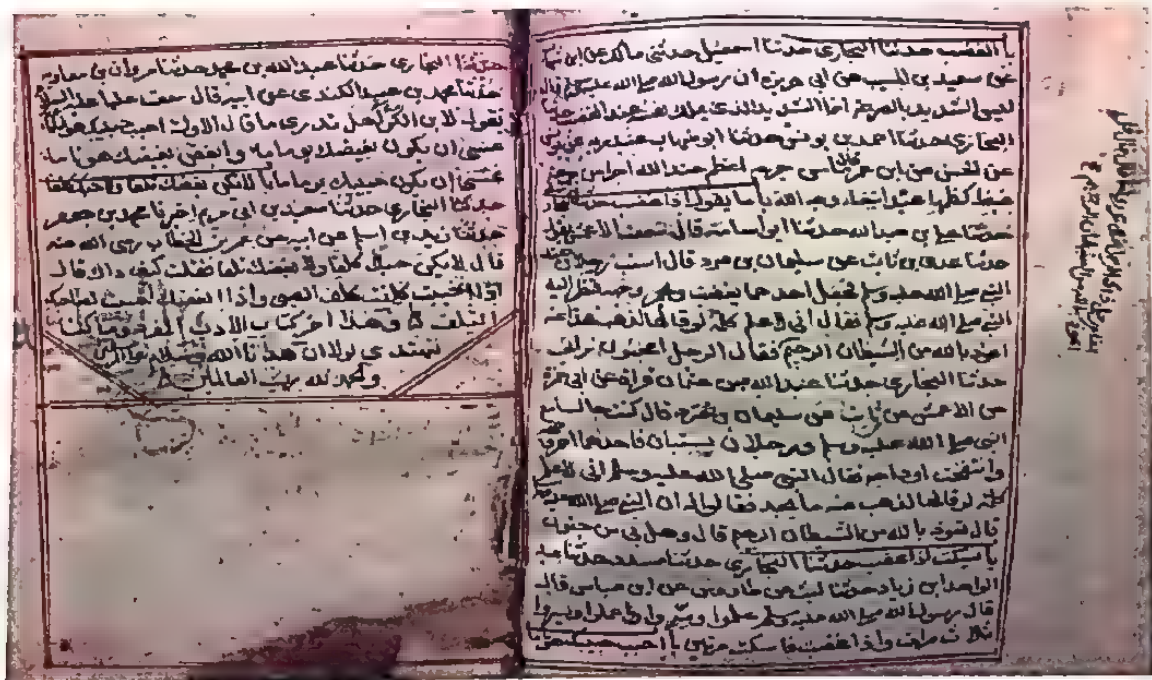 باب الغضب حدثنا البخاري حدثنا اسمعيل حدثني مالك عن ابن شهاب
عن سعيد بن المسيب عن ابي هريرة ان رسول الله صلى الله عليه وسلم قال
ليس الشديد بالصرعة انما الشديد الذي يملك نفسه عند الغضب حدثنا
البخاري حدثنا احمد بن يونس حدثنا ابو شهاب عبد ربه عن يونس
عن الحسن عن ابن عمر قال ما من جرعة اعظم عند الله اجرا من جرعة
غيظ كظمها عبد ابتغاء وجه الله باب ما يقول اذا غضب حدثنا
حدثنا علي بن عبد الله حدثنا ابو اسامة قال سمعت الاعمش يقول
حدثنا عدي بن ثابت عن سليمان بن صرد قال استب رجلان عند
النبي صلى الله عليه وسلم فجعل احدهما يغضب ويحمر وجهه فنظر اليه
النبي صلى الله عليه وسلم فقال اني لاعلم كلمة لو قالها لذهب هذا عنه
اعوذ بالله من الشيطان الرجيم فقام الرجل
حدثنا البخاري حدثنا عبد الله بن عثمان قراءة عن ابي حمزة
عن الاعمش عن ثابت عن سليمان بن صرد قال كنت جالسا مع
النبي صلى الله عليه وسلم ورجلان يستبان فاحدهما احمر
وانتفخت اوداجه فقال النبي صلى الله عليه وسلم اني لاعلم
كلمة لو قالها لذهب عنه ما يجد فقالوا له ان النبي صلى الله عليه وسلم
قال تعوذ بالله من الشيطان الرجيم قال وهل بي من جنون
باب يسكت اذا غضب حدثنا البخاري حدثنا مسدد حدثنا عبد
الواحد بن زياد حدثنا ليث عن طاوس عن ابن عباس قال
قال رسول الله صلى الله عليه وسلم علموا ويسروا علموا ويسروا
ثلاث مرات واذا غضبت فاسكت مرتين باب احبب حبيبك هونا
حدثنا البخاري حدثنا عبد الله بن محمد حدثنا مروان بن معاوية
حدثنا محمد بن عبيد الكندي عن ابيه قال سمعت عليا عليه السلام
يقول لابن الكوا هل تدري ما قال الاول احبب حبيبك هونا ما
عسى ان يكون بغيضك يوما ما وابغض بغيضك هونا ما
عسى ان يكون حبيبك يوما ما باب لا يكن بغضك تلفا
حدثنا البخاري حدثنا سعيد بن ابي مريم اخبرنا محمد بن جعفر
حدثنا زيد بن اسلم عن ابيه عن عمر بن الخطاب رضي الله عنه
قال لا يكن حبك كلفا ولا بغضك تلفا فقلت كيف ذاك قال
اذا احببت كلفت كلف الصبي واذا ابغضت احببت لصاحبك
التلف وهذا اخر كتاب الادب المفرد وما كنا
لنهتدي لولا ان هدانا الله
والحمد لله رب العالمين